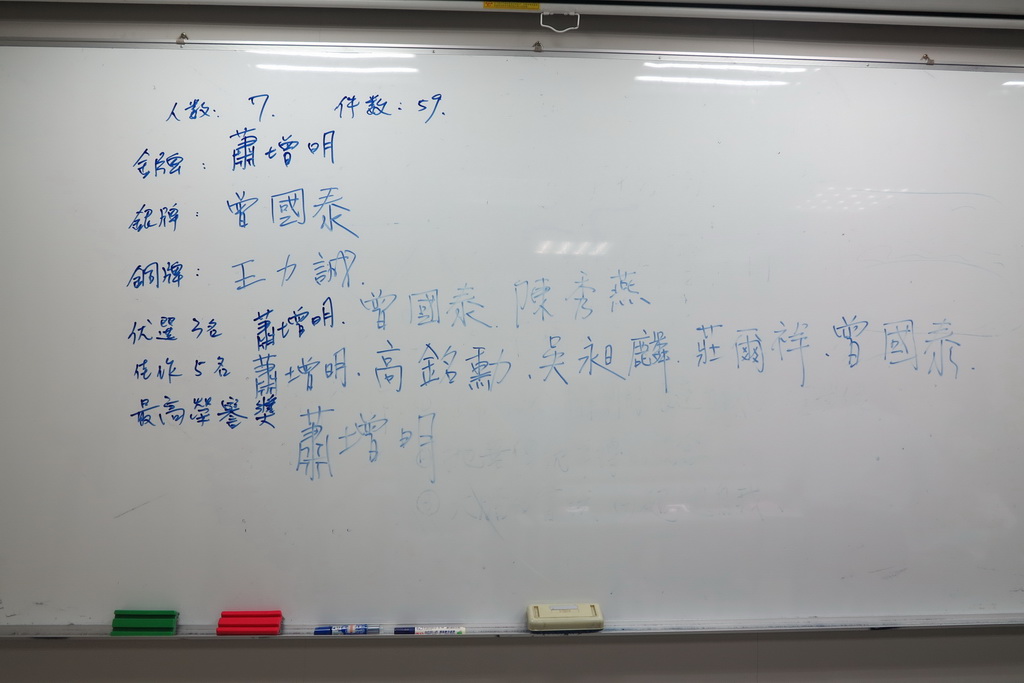 人数: 7. 件数: 59.
金牌: 蕭增明
銀牌: 曾國泰
銅牌: 王力誠
优選3名 蕭增明. 曾國泰. 陳秀燕
佳作5名 蕭增明. 高銘勳. 吳昶麟. 莊爾祥. 曾國泰.
最高榮譽獎
蕭增明